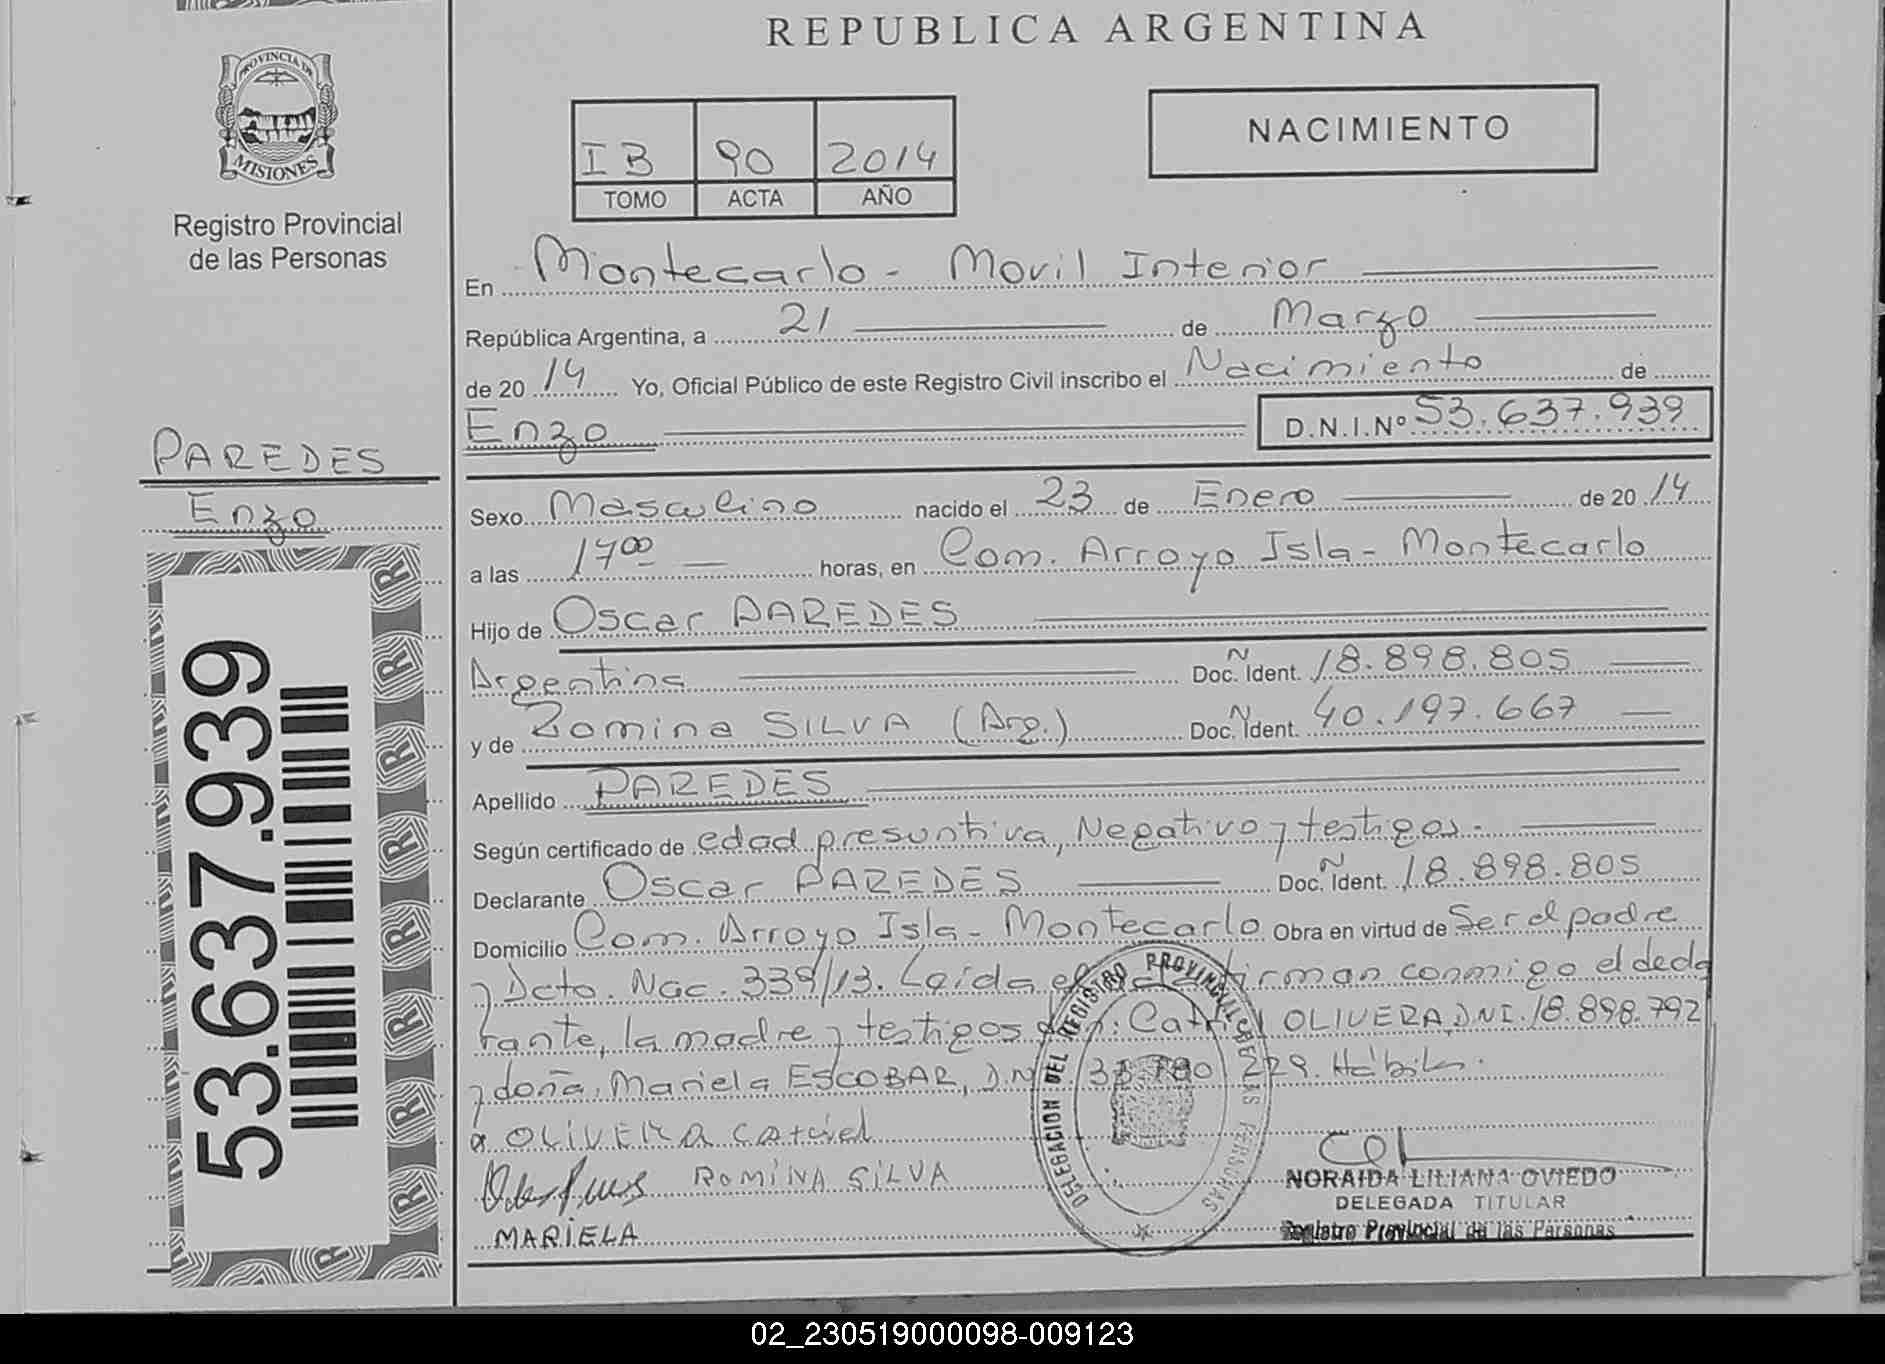 REPUBLICA ARGENTINA
PROVINCIA DE
MISIONES
Registro Provincial
de las Personas
IB 90 2014
TOMO ACTA AÑO
NACIMIENTO
En Montecarlo - Movil Interior
República Argentina, a 21 de Marzo
de 20 14 Yo, Oficial Público de este Registro Civil inscribo el Nacimiento de
Enzo D.N.I.Nº 53.637.939
PAREDES
Enzo
53.637.939
Sexo Masculino nacido el 23 de Enero de 20 14
a las 1700 horas, en Com. Arroyo Isla - Montecarlo
Hijo de Oscar PAREDES
Argentina Doc. Ident. 18.898.805
y de Romina SILVA (Arg.) Doc. Ident. 40.197.667
Apellido PAREDES
Según certificado de edad presuntiva, Negativo y testigos.
Declarante Oscar PAREDES Doc. Ident. 18.898.805
Domicilio Com. Arroyo Isla - Montecarlo Obra en virtud de Ser el padre
y Dcto. Nac. 339/13. Leída el firman conmigo el decla
rante, la madre y testigos OLIVERA, DNI. 18.898.792
y doña, Mariela ESCOBAR, 229. Hábiles.
OLIVERA
ROMINA SILVA
MARIELA
DELEGACION DEL REGISTRO PROVINCIAL DE LAS PERSONAS
NORAIDA LILIANA OVIEDO
DELEGADA TITULAR
Registro Provincial de las Personas
02_230519000098-009123